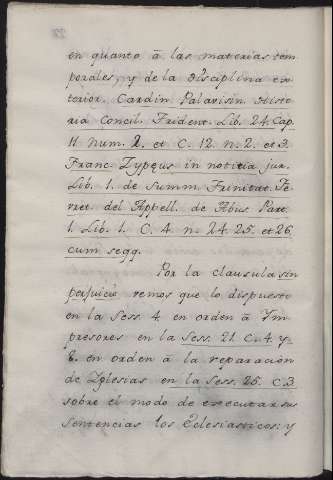 en quanto â las materias tem
porales, y de la disciplina ex
terior. Cardin. Palavisin. Histo
ria Concil. Trident. Lib. 24. Cap.
11 num. 2. et C. 12. n. 2. et 3.
Franc. Zypęus in notitia jur.
Lib. 1. de Summ. Trinitat. Fe
vret. del Appell. de Abus Part.
1. Lib. 1. C. 4. n. 24. 25. et 26
cum segq.
Por la clausula sin
perjuicio vemos que lo dispuesto
en la Sess. 4. en orden â Ym
presores en la Sess. 21. C. 4. y
8. en orden â la reparacion
de Yglesias en la Sess. 25. C. 3
sobre el modo de executar sus
sentencias los Eclesiasticos: y